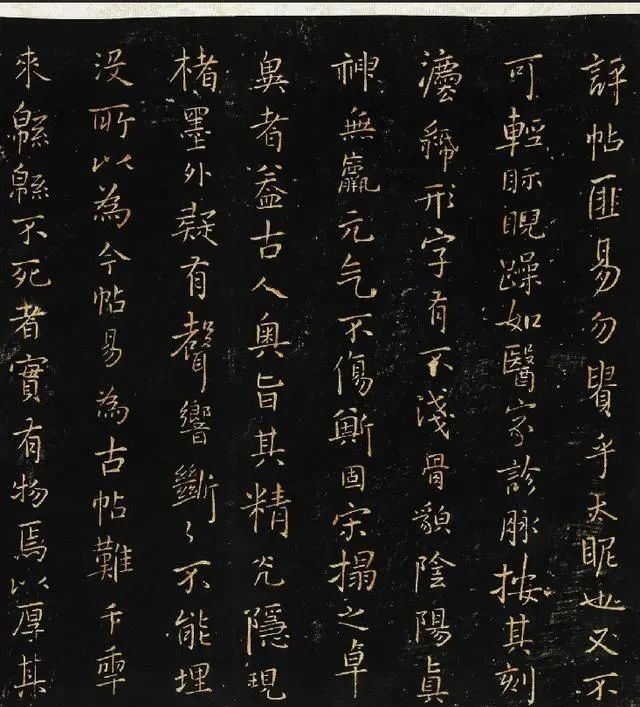 評帖匪易勿乎天昵也又不
可輕眎睨躁如醫家診脈按其刻
形字有不淺骨貌陰陽真
神無羸元气不傷斯固宋搨之卓
異者益古人奧旨其精光隱現
楮墨外疑有聲響斷〻不能埋
没所以為今帖易為古帖難千秊
來緜緜不死者實有物焉以厚其